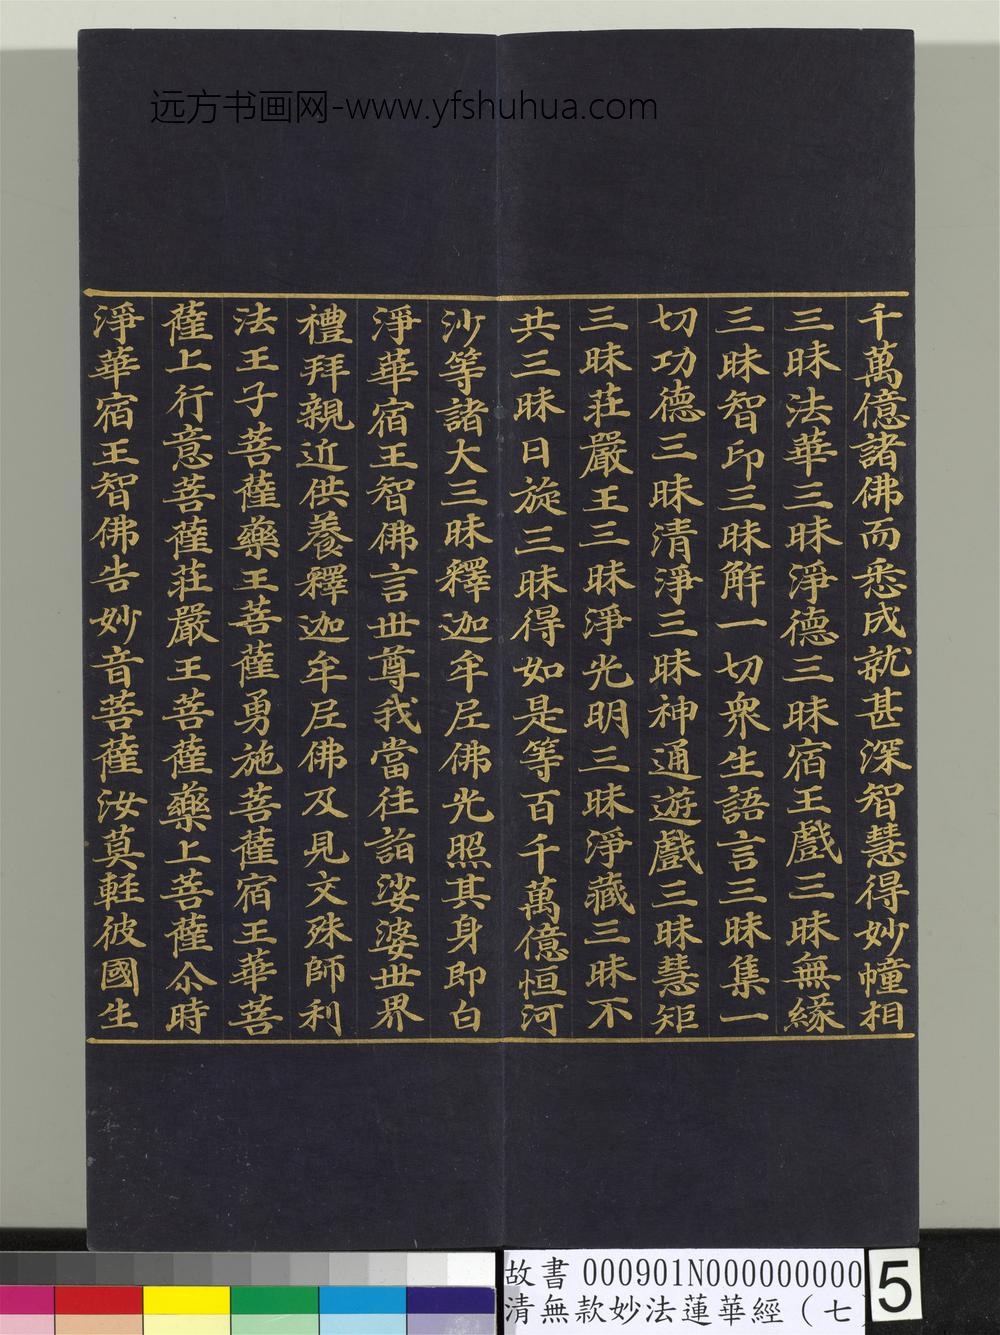 远方书画网-www.yfshuhua.com
千萬億諸佛而悉成就甚深智慧得妙幢相
三昧法華三昧淨德三昧宿王戲三昧無緣
三昧智印三昧解一切衆生語言三昧集一
切功德三昧清淨三昧神通遊戲三昧慧炬
三昧莊嚴王三昧淨光明三昧淨藏三昧不
共三昧日旋三昧得如是等百千萬億恒河
沙等諸大三昧釋迦牟尼佛光照其身即白
淨華宿王智佛言世尊我當往詣娑婆世界
禮拜親近供養釋迦牟尼佛及見文殊師利
法王子菩薩藥王菩薩勇施菩薩宿王華菩
薩上行意菩薩莊嚴王菩薩藥上菩薩尒時
淨華宿王智佛告妙音菩薩汝莫輕彼國生
故書 000901N000000000
清無款妙法蓮華經（七）
5